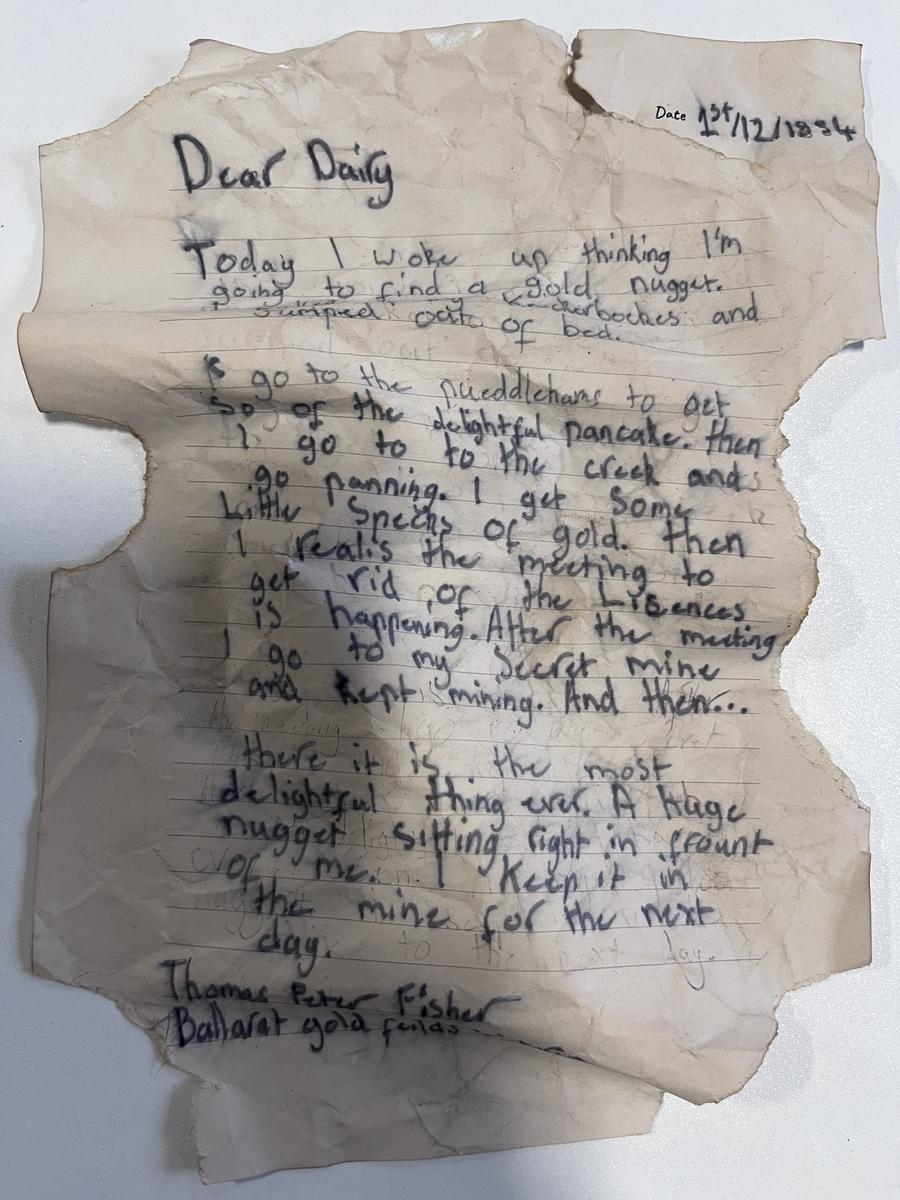 Date 1st/12/1854
Dear Dairy
Today I woke up thinking I'm
going to find a gold nugget.
jumped out of bed. and
I go to the pueddlehams to get
so of the delightful pancake. then
I go to to the creek and
go panning. I get some
Little Specks of gold. then
I realis the meeting to
get rid of the Lisences
is happening. After the meeting
I go to my secret mine
and kept mining. And then...
there it is the most
delightful thing ever. A huge
nugget sitting right in frount
of me. I Keep it in
the mine for the next
day.
Thomas Peter Fisher
Ballarat gold feilds